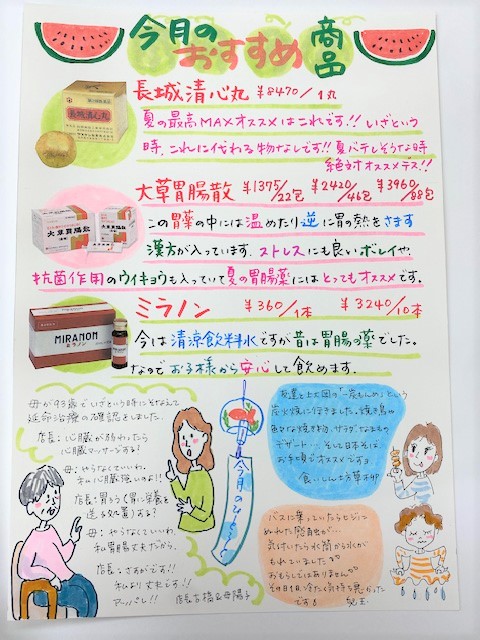 今月の
おすすめ
商品
長城清心丸 ¥8470/1丸
長城清心丸
夏の最高MAXオススメはこれです!!いざという
時、これに代わる物なしです!!夏バテしそうな時
絶対オススメデス!!
大草胃腸散 ¥1375/22包 ¥2420/46包 ¥3960/88包
大草胃腸散
この胃薬の中には温めたり逆に胃の熱をさます
漢方が入っています。ストレスにも良いボレイや、
抗菌作用のウイキョウも入っていて夏の胃腸薬にはとってもオススメです。
ミラノン ¥360/1本 ¥3240/10本
MIRANON
ミラノン
今は清涼飲料水ですが昔は胃腸の薬でした。
なのでお子様から安心して飲めます。
母が93歳でいざという時にそなえて
延命治療の確認をしました。
店長:心臓が弱わったら
心臓マッサージする!
母:やらなくていいわ、
私心臓強いのよ!!
店長:胃ろう(胃に栄養を
送る処置)する?
母:やらなくていいわ、
私胃腸丈夫だから。
店長:さすがです!!
私より丈夫です!!
アッパレ!!
店長古橋&母陽子
今月のひとこと
炭火焼に行きました。焼き鳥や
色々な焼き物、サラダ、なまもの
デザート…、そして日本そば
お手頃でオススメですョ
バスに乗っていたらヒジに
ぬれた感触が…
気づいたら水筒から水が
もれていました
おもらしではありません
その日1日冷たく気持ち悪かった
です